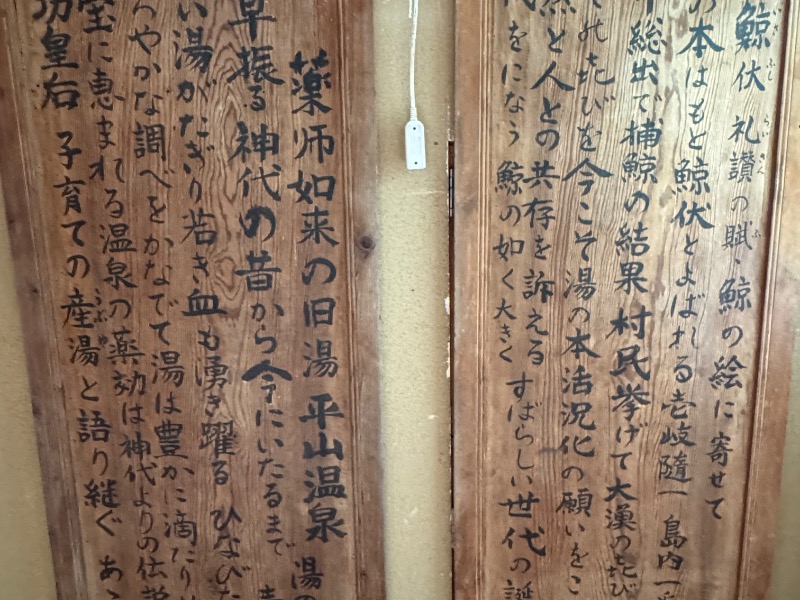 鯨伏礼讃の賦、鯨の絵に寄せて
いさ ふし らい さん ふ
の本はもと鯨伏とよばれる壱岐随一 島内一
総出で捕鯨の結果 村民挙げて大漢の㐂び
の㐂びを今こそ湯の本活況化の願いをこ
然と人との共存を訴える すばらしい世代の誕
代をになう 鯨の如く大きく
薬師如来の旧湯 平山温泉 湯の
早振る神代の昔から今にいたるまで
い湯がたぎり若き血も湧き躍る ひなびた
つやかな調べをかなでて湯は豊かに滴たり
室に恵まれる温泉の薬効は神代よりの伝説
功皇后 子育ての産湯と語り継ぐ あゝ
うぶゆ